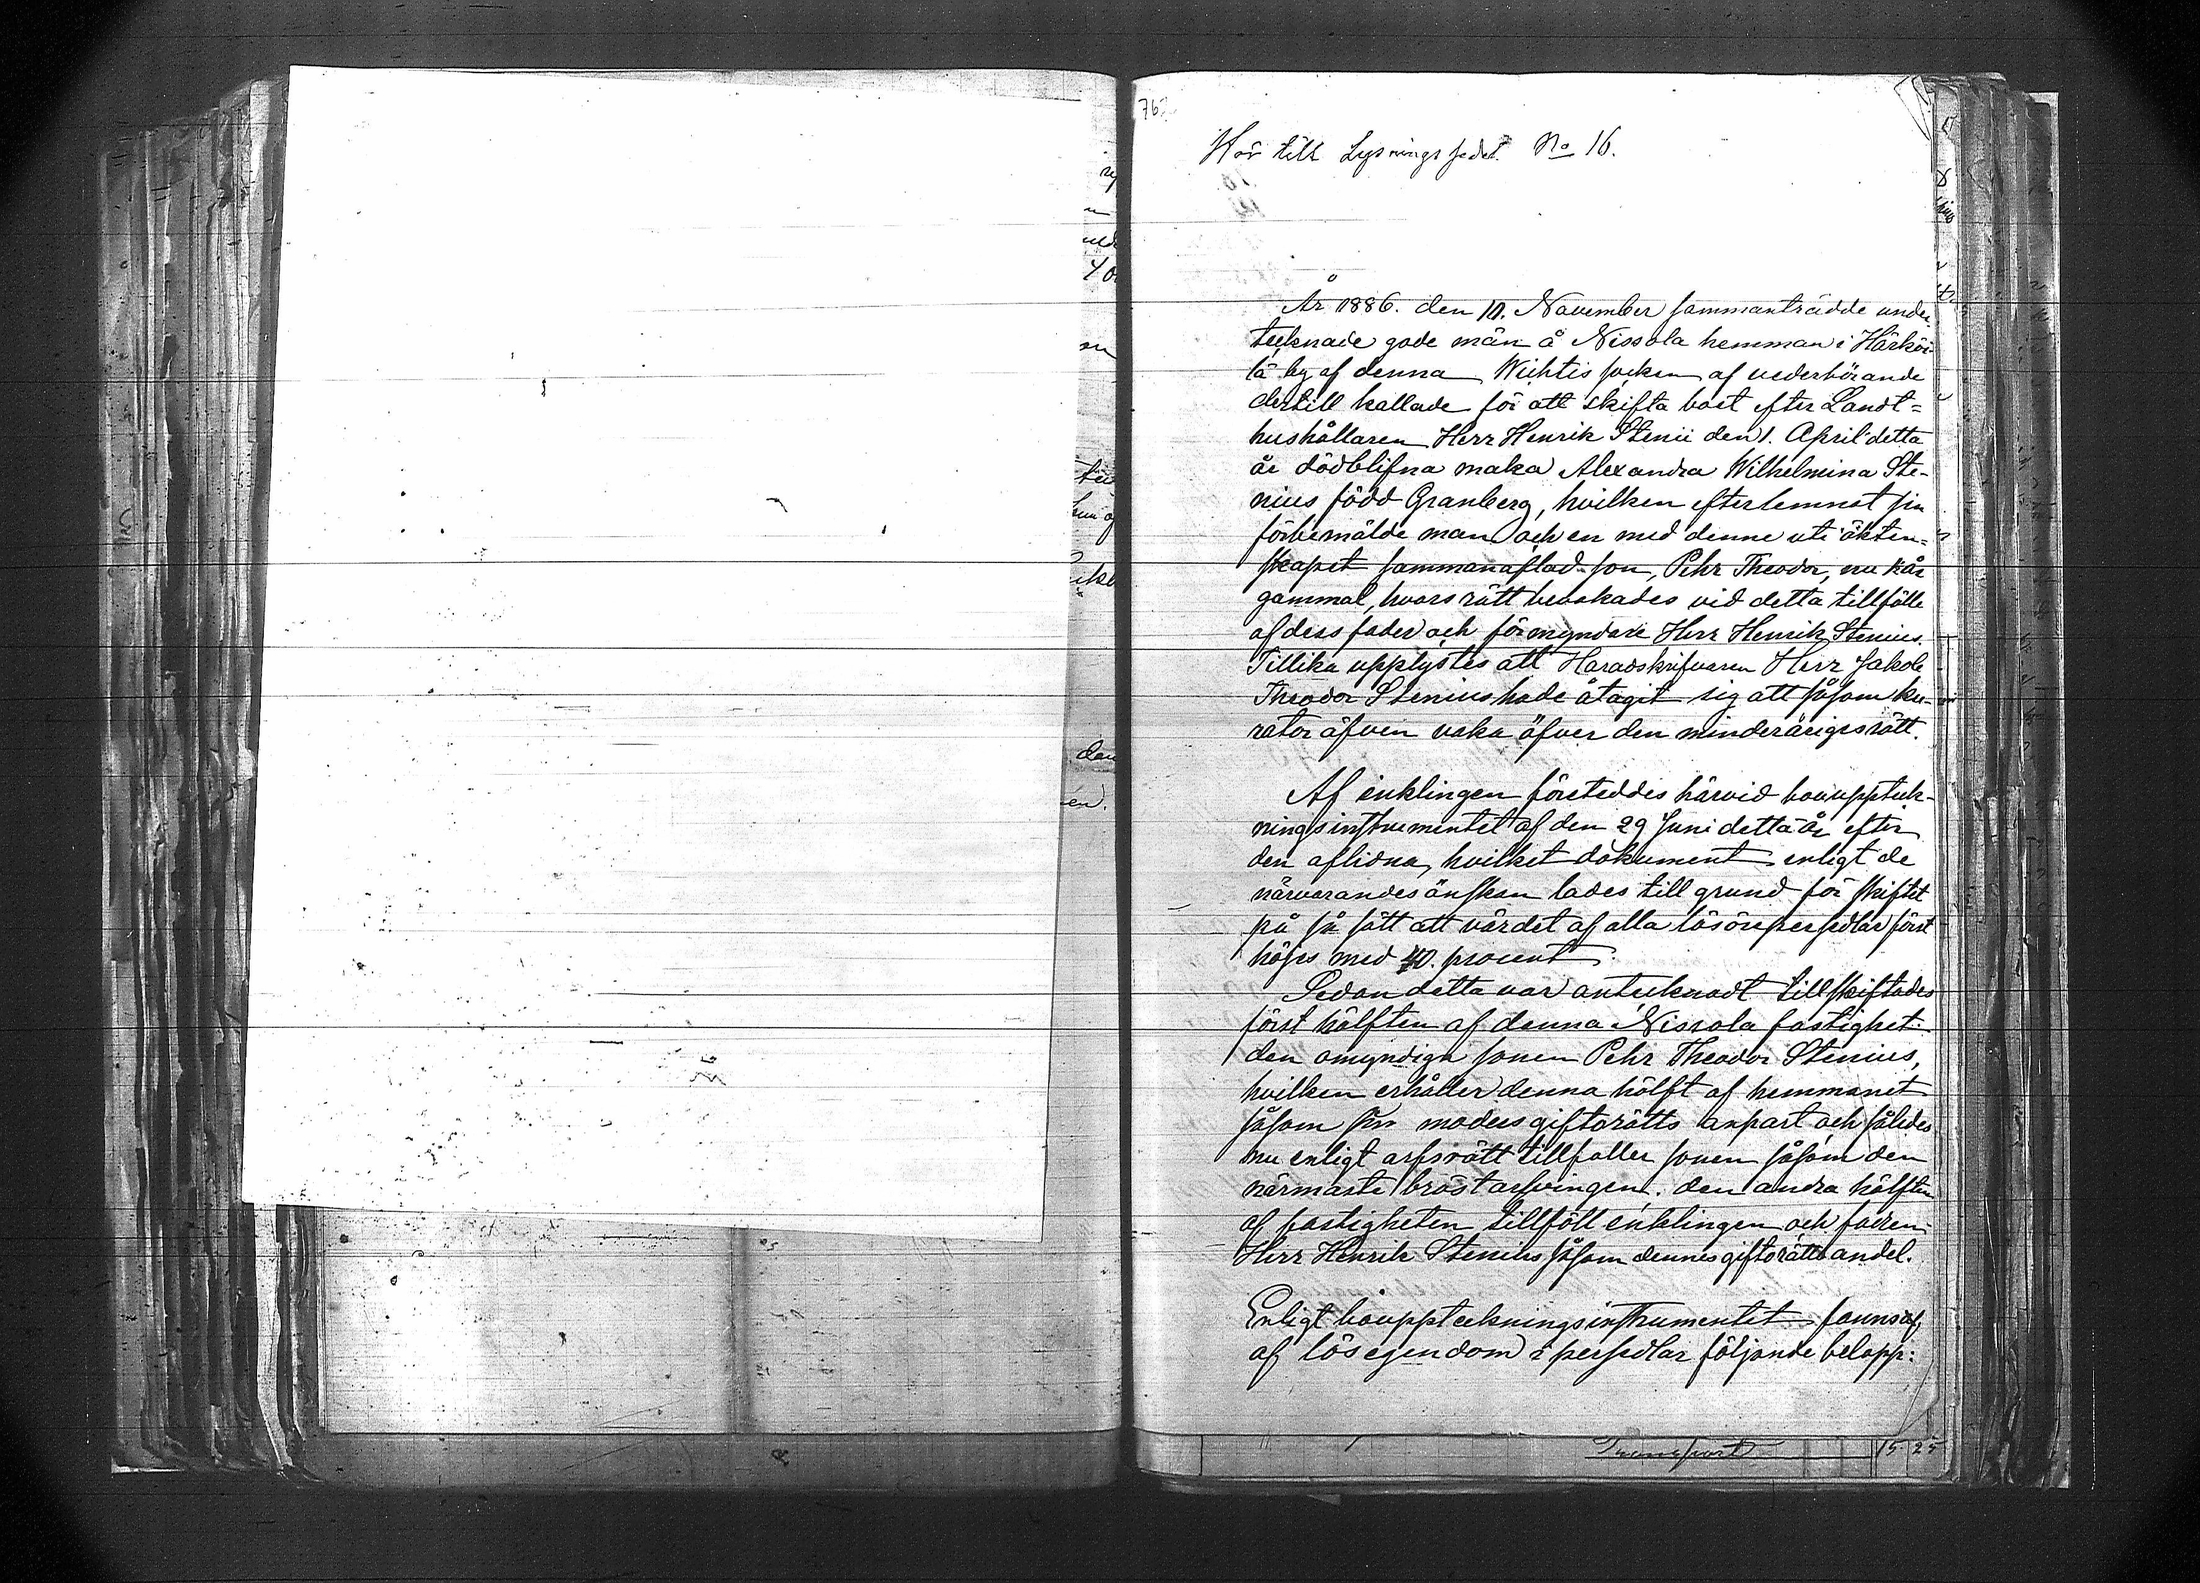 762
Hör till Lysningssedel No 16.
År 1886. den 10. November sammanträdde under-
tecknade gode män å Nissola hemman i Härköi-
lä by af denna Wichtis socken af vederbörande
dertill kallade för att skifta boet efter Landt=
hushållaren Herr Henrik Stenii den 1. April detta
år dödblifna maka Alexandra Wilhelmina Ste-
nius född Granberg, hvilken efterlemnat sin
förbemälde man och en med denne uti äkten-
skapet sammanaflad son, Pehr Theodor, nu år
gammal, hvars rätt bevakades vid detta tillfälle
af dess fader och förmyndare Herr Henrik Stenius.
Tillika upplystes att Häradskrifvaren Herr Jakob
Theodor Stenius hade åtagit sig att såsom ku-
rator äfven vaka öfver den minderåriges rätt.
Af enklingen företeddes härvid bouppteck-
ningsinstrumentet af den 29 Juni detta år efter
den aflidna, hvilket dokument enligt de
närvarandes önskan lades till grund för skiftet
på så sätt att värdet af alla lösörepersedlar först
höjes med 40. procent.
Sedan detta var antecknadt tillskiftades
först hälften af denna Nissola fastighet
den omyndiga sonen Pehr Theodor Stenius,
hvilken erhåller denna hälft af hemmanet
såsom sin moders giftorätts anpart och således
nu enligt arfsrätt tillfaller sonen såsom den
närmaste bröstarfvingen. den andra hälften
af fastigheten tillföll enklingen och fadren
Herr Henrik Stenius såsom dennes giftorättsandel.
Enligt bouppteckningsinstrumentet fanns
af lösegendom i persedlar följande belopp:
Transport 15 25